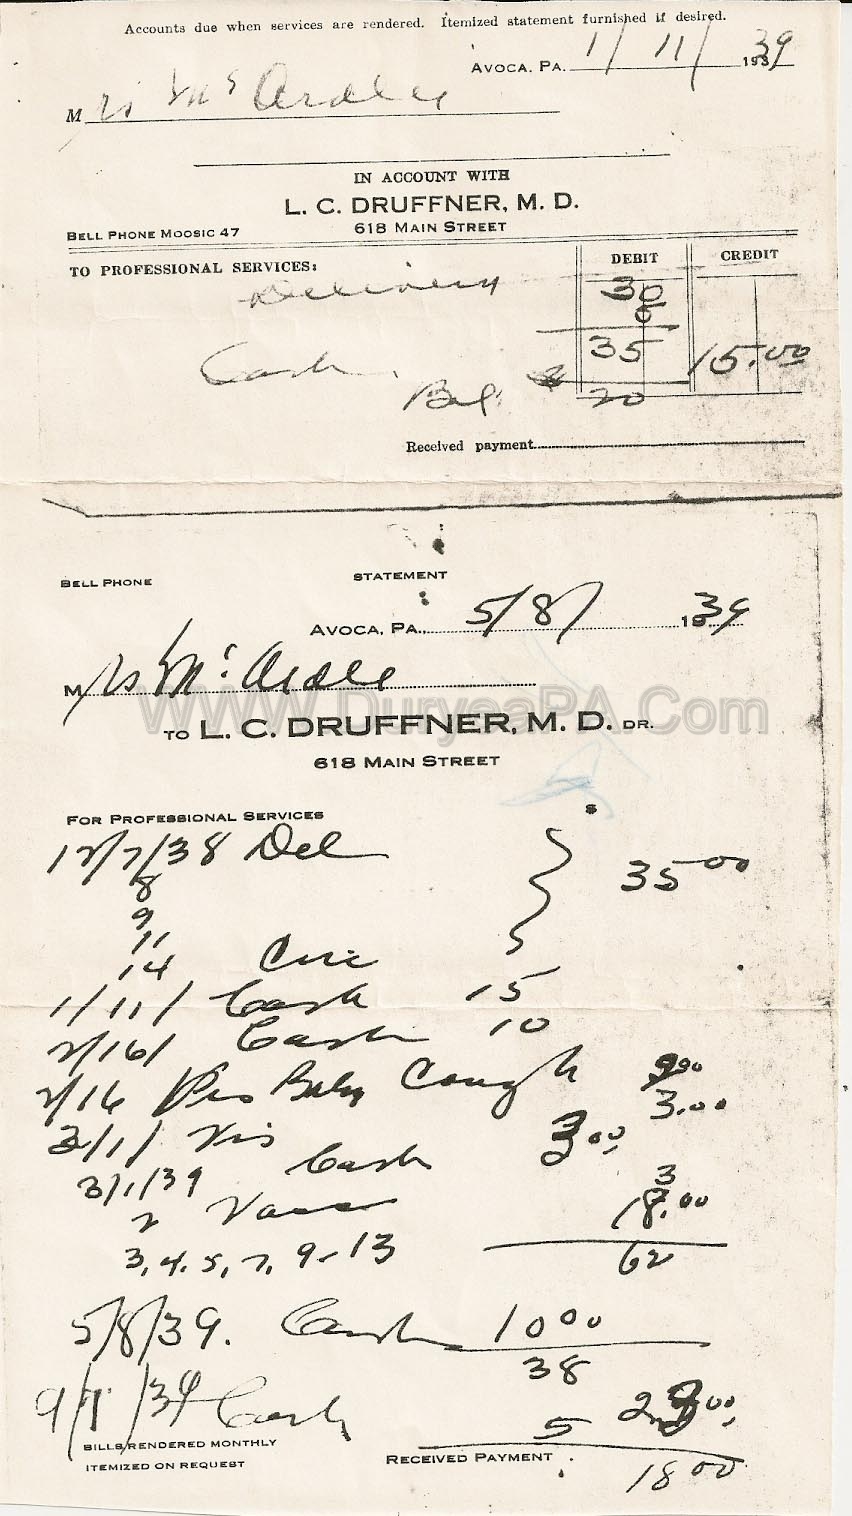 Accounts due when services are rendered. Itemized statement furnished if desired.
AVOCA, PA. 1/11/ 1939
Mrs Mc Ardle
IN ACCOUNT WITH
L. C. DRUFFNER, M. D.
BELL PHONE MOOSIC 47 618 MAIN STREET
TO PROFESSIONAL SERVICES: DEBIT CREDIT
Delivery 30
35
Cash 15.00
Bal. 20
Received payment
BELL PHONE STATEMENT
AVOCA, PA., 5/8/ 1939
Mrs Mc Ardle
WWW.DuryeaPA.Com
TO L. C. DRUFFNER, M. D. DR.
618 MAIN STREET
FOR PROFESSIONAL SERVICES $
12/7/38 Del 35 00
8
9
11
14 Circ
1/11/ Cash 15
2/16/ Cash 10
2/16 Baby Cough
3.00
3/1/ Vis 3 00
3/1/39 Cash 3
2 18.00
3, 4, 5, 7, 9-13 62
5/8/39. Cash 10 00
38
9/7/39 Cash 5
BILLS RENDERED MONTHLY
ITEMIZED ON REQUEST RECEIVED PAYMENT
18 00